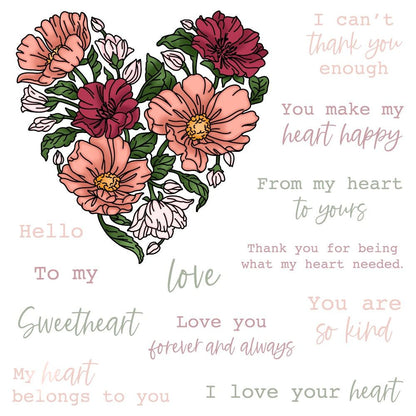 I can't
thank you
enough
You make my
heart happy
From my heart
to yours
Hello
Thank you for being
what my heart needed.
To my
love
Sweetheart
Love you
forever and always
You are
so kind
My heart
belongs to you
I love your heart